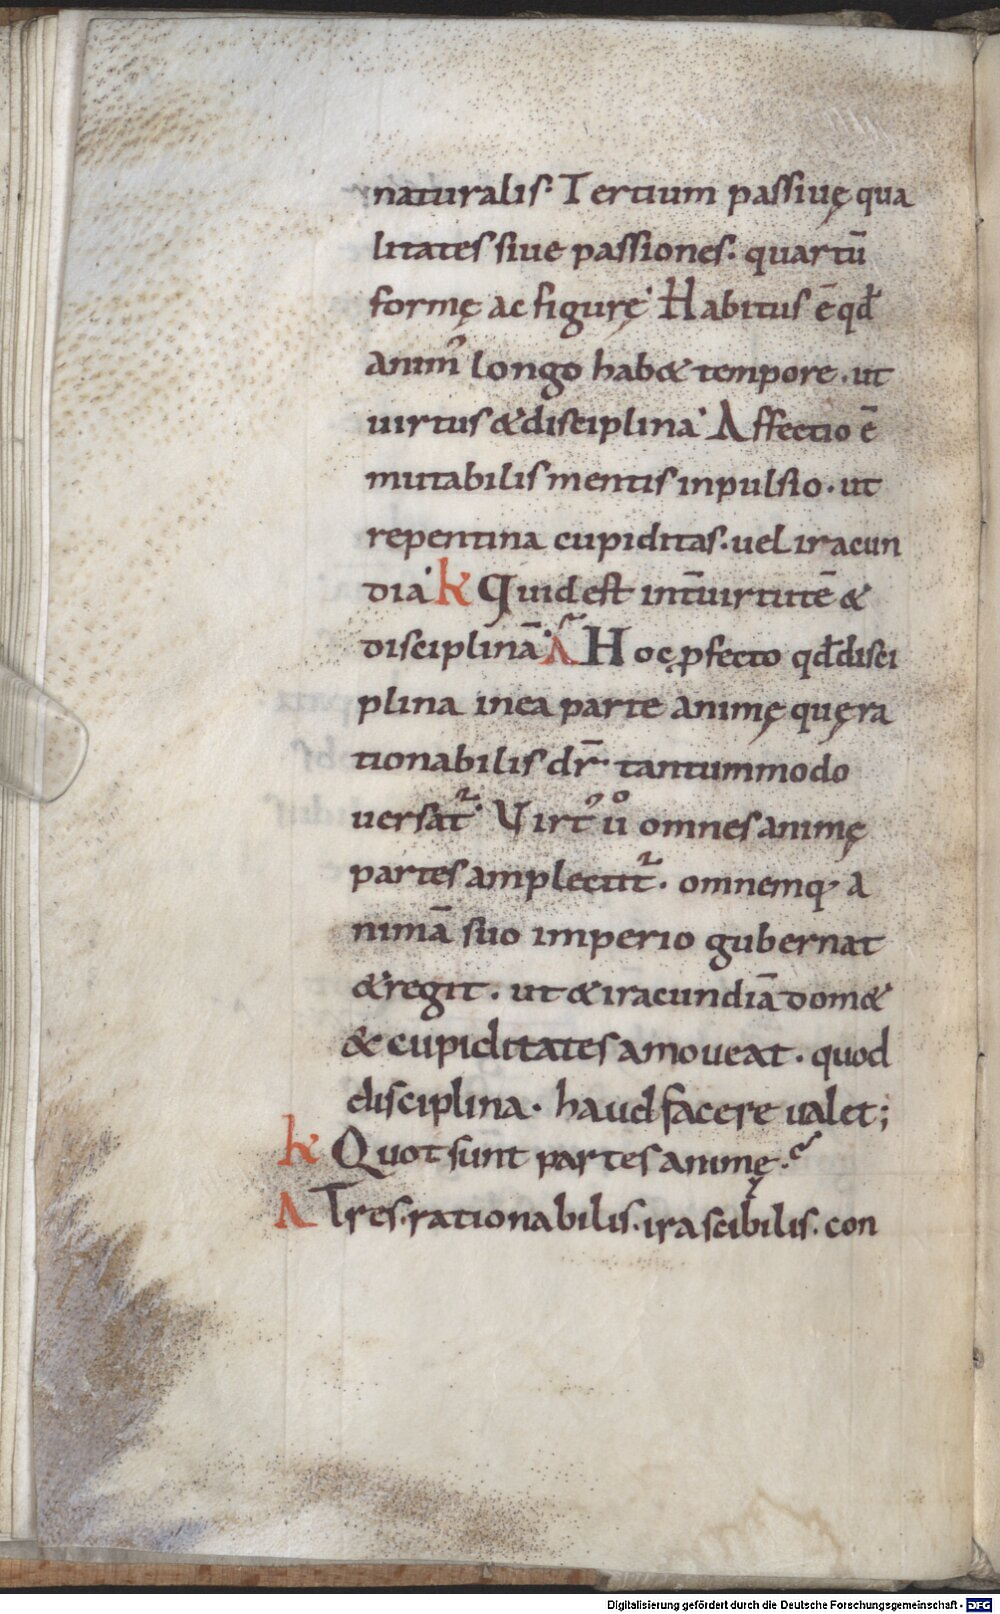 naturalis· Tertium passiuę qua
litates siue passiones· quartū
formę ac figurę· Habitus ē qđ
anim᾽ longo hab& tempore· ut
uirtus & disciplina· Affectio ē
mutabilis mentis inpulsio· ut
repentina cupiditas· uel iracun
dia· K Quid est int̄ uirtutē &
disciplinā· A Hoc ꝓfecto qđ disci
plina in ea parte animę quę ra
tionabilis dr̄· tantummodo
uersat᷑· Virt᾽ uͦ omnes animę
partes amplectit᷑· omnemq· a
nimā suo imperio gubernat
& regit· ut & iracundiā dom&
& cupiditates amoueat· quod
disciplina· haud facere ualet;
K Quot sunt partes animę·
A Tres· rationabilis· irascibilis· con
Digitalisierung gefördert durch die Deutsche Forschungsgemeinschaft - DFG